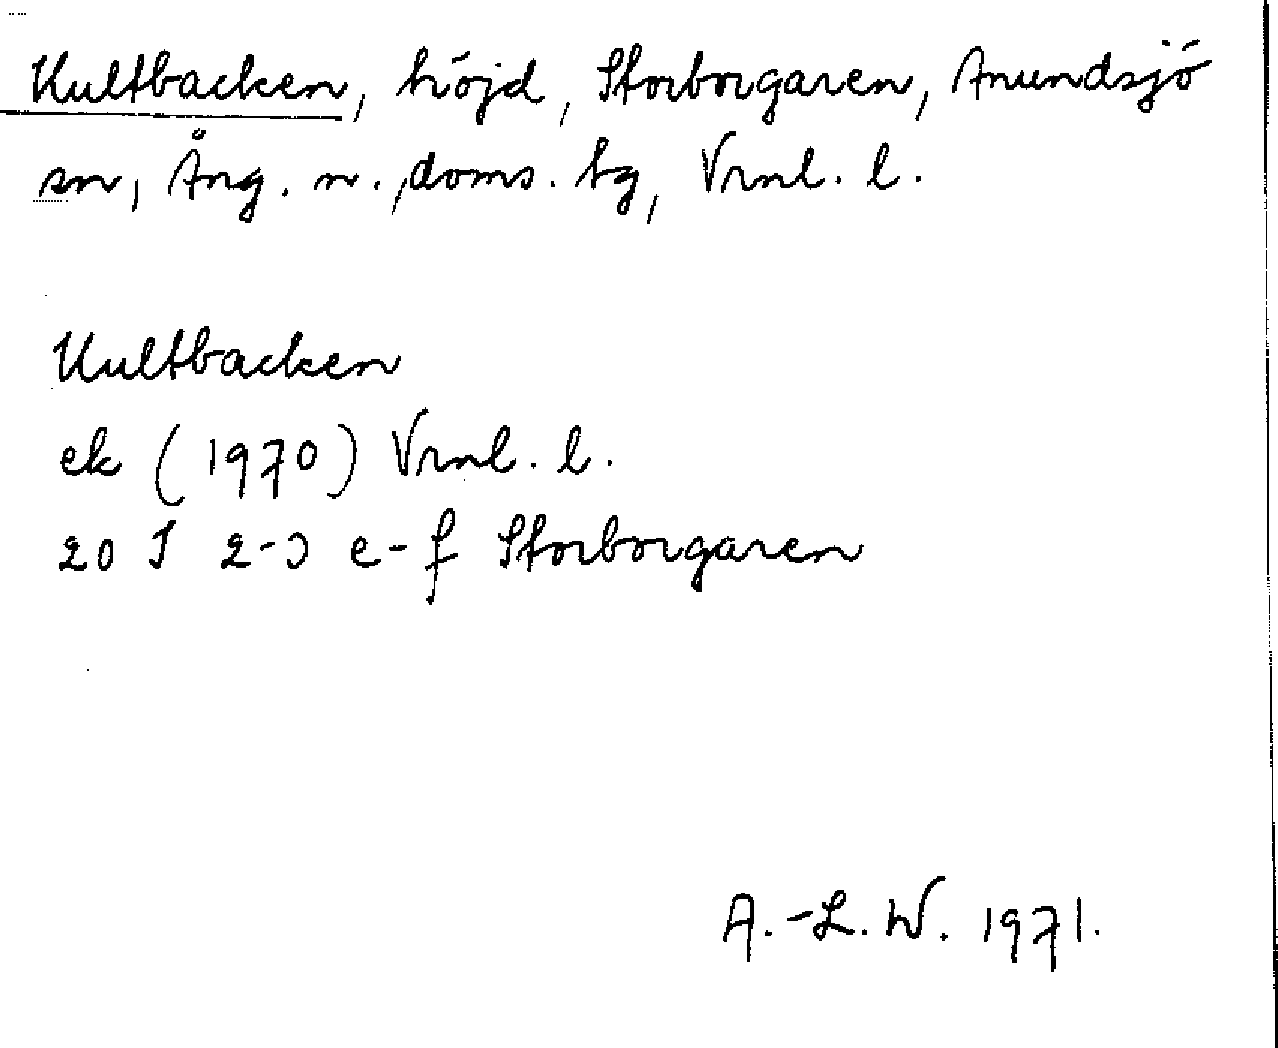 Kultbacken, höjd, Storborgaren, Anundsjö
sn, Ång. n., doms. tg, Vrnl. l.
Kultbacken
ek (1970) Vrnl. l.
20 J 2-3 e-f Storborgaren
A.-L. W. 1971.